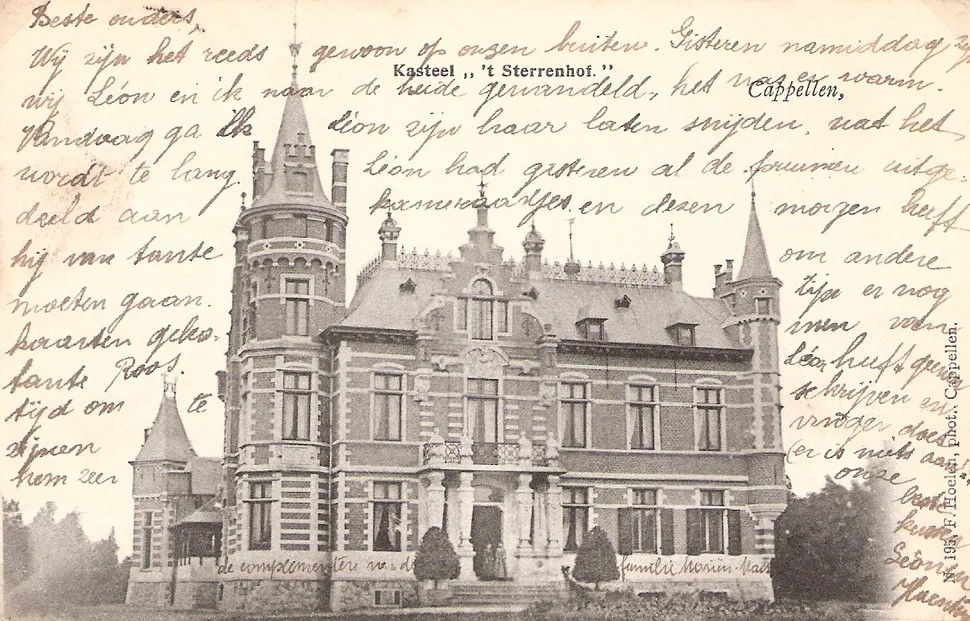 Beste ouders,
Wij zijn het reeds gewoon op onzen buiten. Gisteren namiddag zijn
Kasteel „ 't Sterrenhof. "
wij Léon en ik naar de heide gewandeld, het was er warm.
Cappellen,
Vandaag ga ik Léon zijn haar laten snijden, want het
wordt te lang. Léon had gisteren al de pruimen uitge-
deeld aan kameraadjes en dezen morgen heeft
hij van tante om andere
moeten gaan. zijn er nog
kaarten geko- men, van
tante Roos. Léon heeft geen
tijd om te schrijven en
zijnen vinger doet
hem zeer (er is niets aan)
onze
beste
de complimenten van de familie
Nº 195. F. Hoelen, phot. Cappellen.